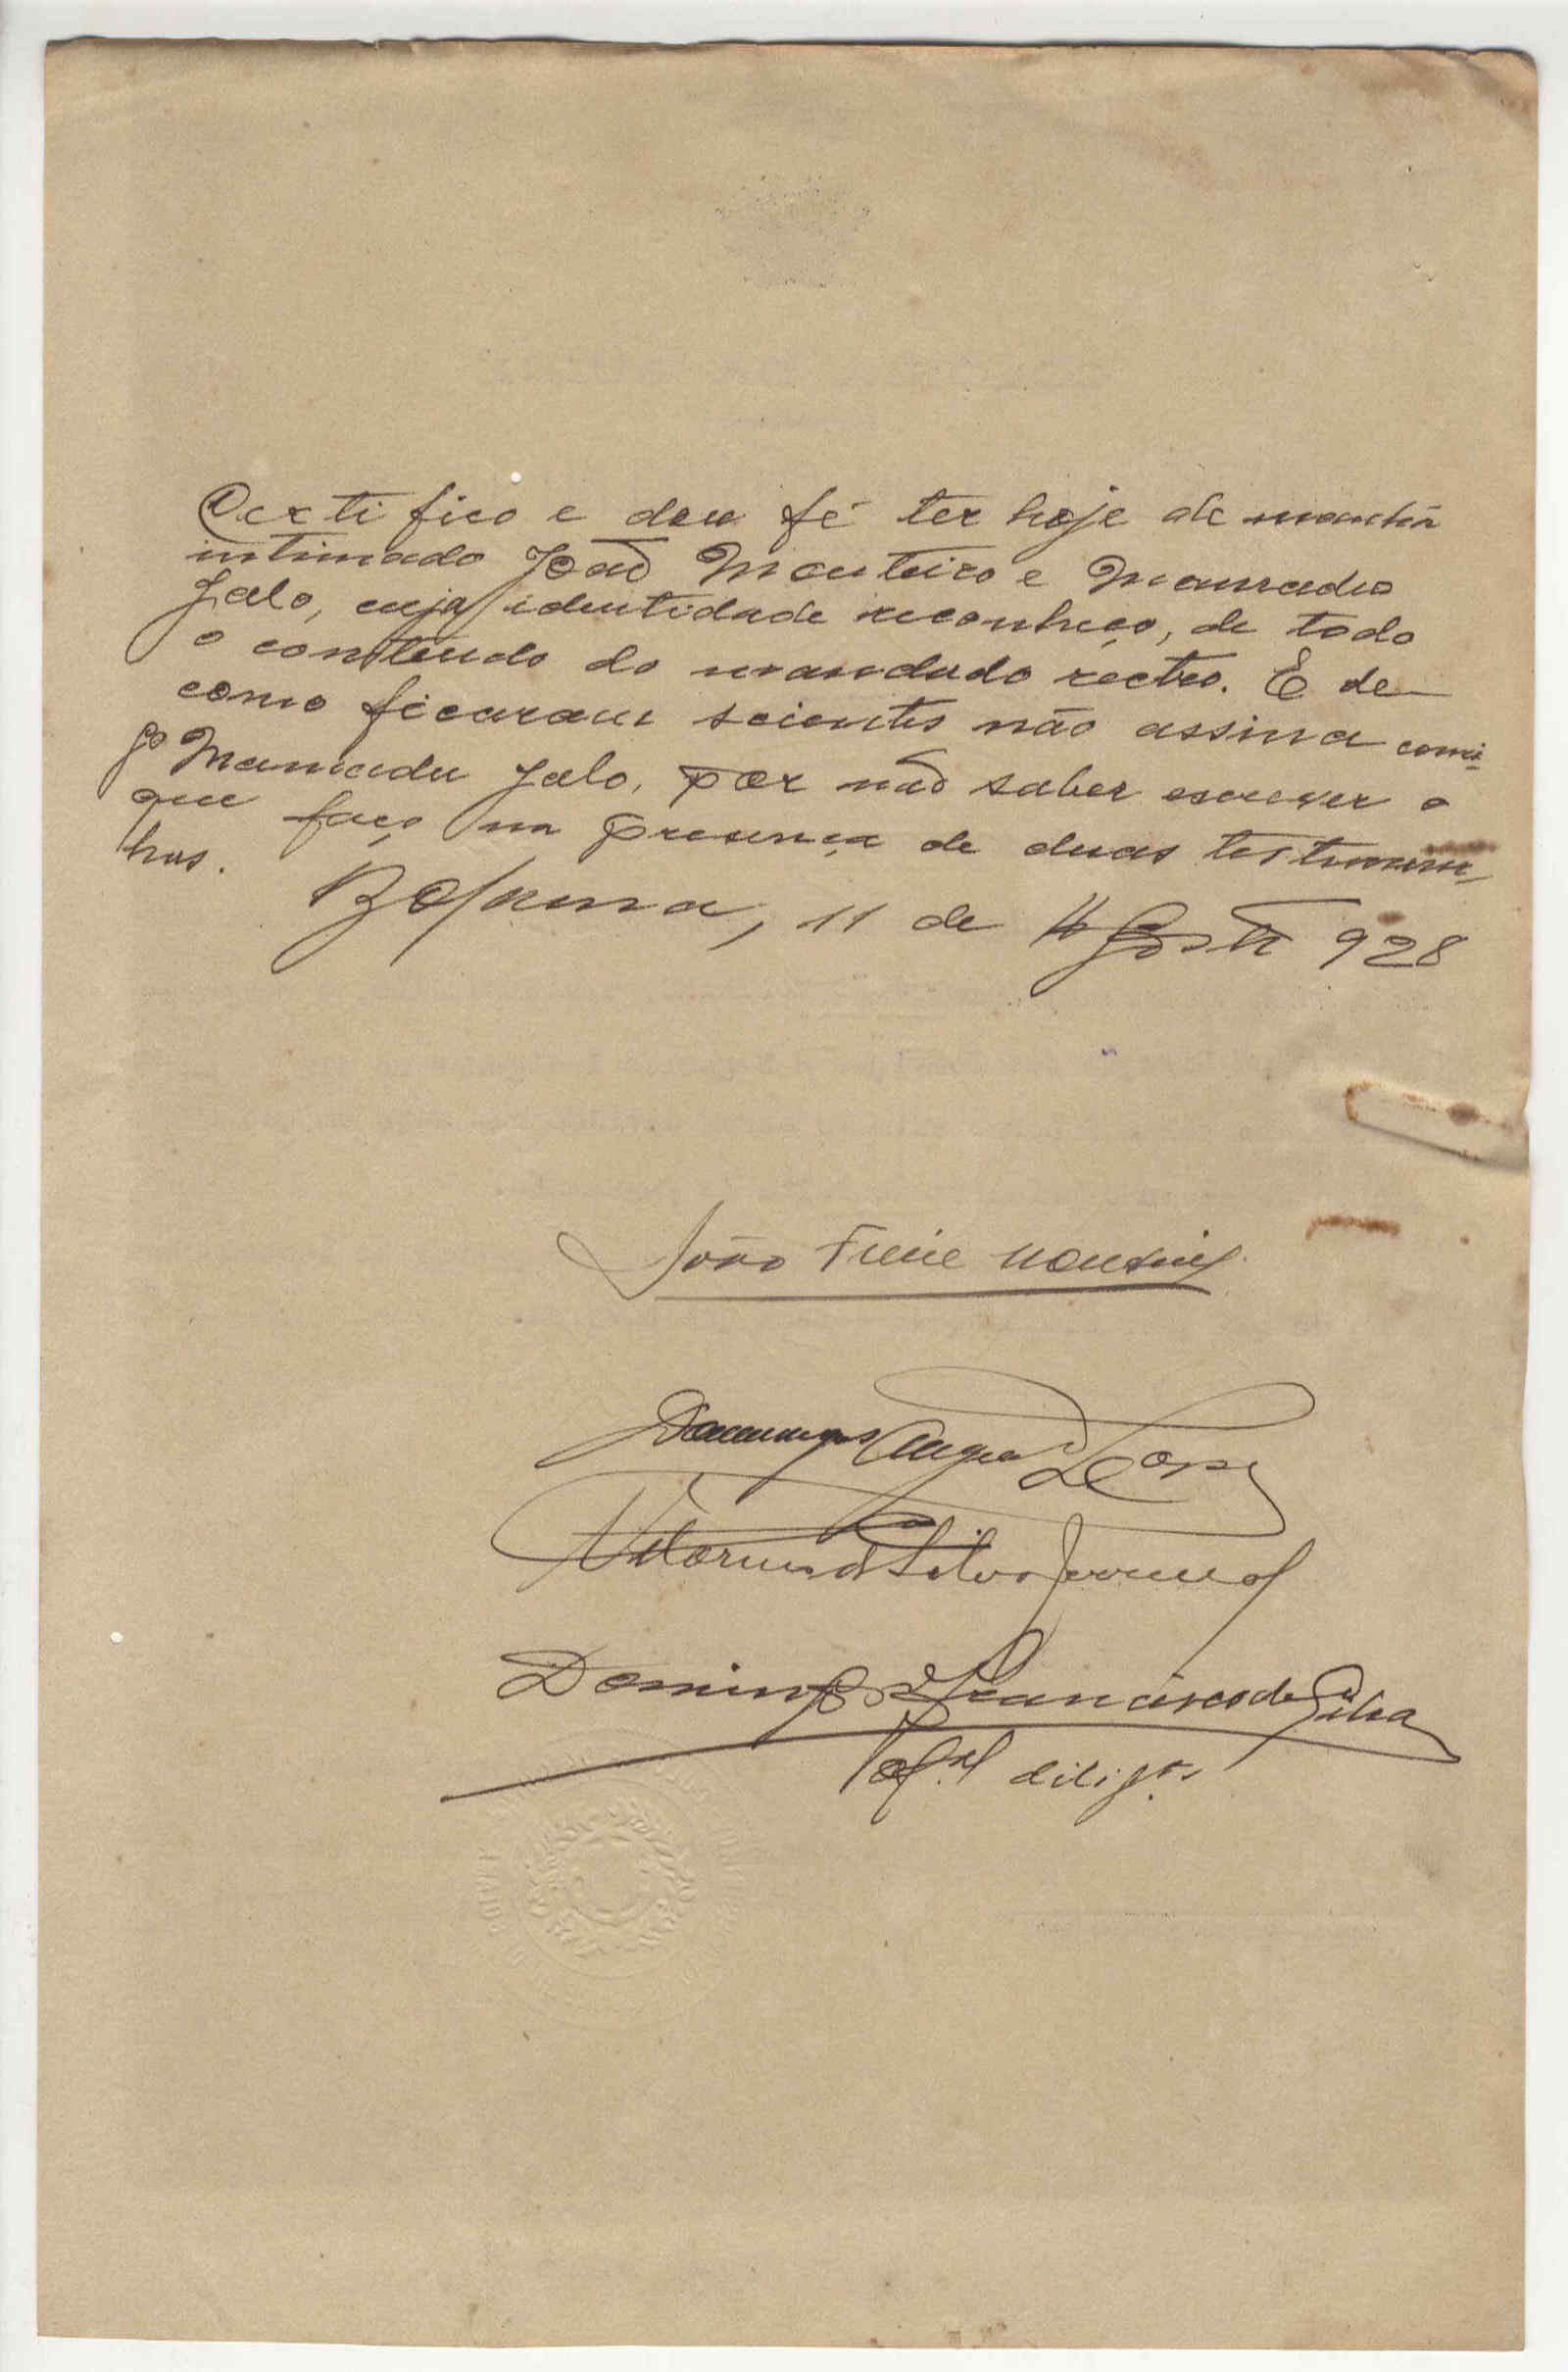 Certifico e dou fé ter hoje de manhã
intimado João Monteiro e Mamadu
Jalo, cuja identidade reconheço, de todo
o conteudo do mandado rectro. E de
como ficaram scientes não assina comi-
go Mamadu Jalo, por não saber escrever o
que faço na presença de duas testimun-
has.
Bolama, 11 de Agosto 928
João Freire Monteiro
Domingos Lopes
Vitorino da Silva
Domingos Francisco da Silva
Of.al dilig.as